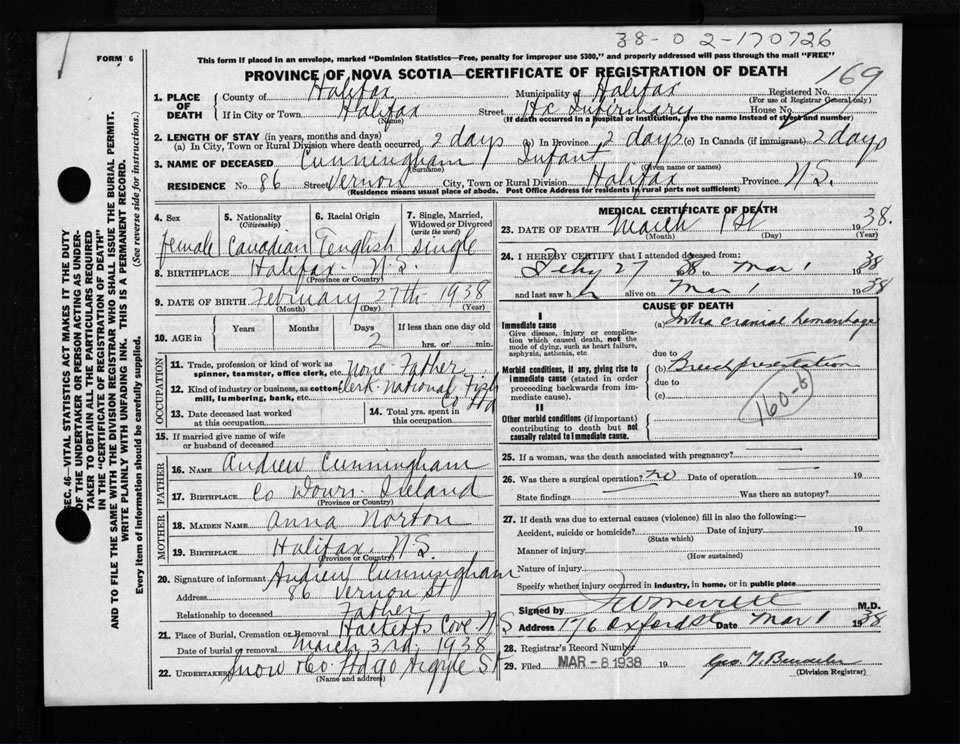 38-02-170726
FORM 6
This form if placed in an envelope, marked "Dominion Statistics—Free, penalty for improper use $300," and properly addressed will pass through the mail "FREE"
PROVINCE OF NOVA SCOTIA—CERTIFICATE OF REGISTRATION OF DEATH
169
1. PLACE OF DEATH
County of Halifax Municipality of Halifax Registered No.
(For use of Registrar General only)
If in City or Town Halifax Street Hx Infirmary House No.
(Name) (If death occurred in a hospital or institution, give the name instead of street and number)
2. LENGTH OF STAY (in years, months and days)
(a) In City, Town or Rural Division where death occurred 2 days (b) In Province 2 days (c) In Canada (if immigrant) 2 days
3. NAME OF DECEASED Cunningham Infant
(Surname) (Given name or names)
RESIDENCE No. 86 Street Vernon City, Town or Rural Division Halifax Province N.S.
(Residence means usual place of abode. Post Office Address for residents in rural parts not sufficient)
4. Sex
female
5. Nationality (Citizenship)
Canadian
6. Racial Origin
English
7. Single, Married, Widowed or Divorced (write the word)
single
8. BIRTHPLACE Halifax N.S.
(Province or Country)
9. DATE OF BIRTH February 27th 1938
(Month) (Day) (Year)
10. AGE in
Years Months Days If less than one day old
2 hrs. or min.
OCCUPATION
11. Trade, profession or kind of work as spinner, teamster, office clerk, etc. none Father
12. Kind of industry or business, as cotton mill, lumbering, bank, etc. Clerk-National Fish Co Ltd
13. Date deceased last worked at this occupation
14. Total yrs. spent in this occupation
15. If married give name of wife or husband of deceased
FATHER
16. NAME Andrew Cunningham
17. BIRTHPLACE Co Down Ireland
(Province or Country)
MOTHER
18. MAIDEN NAME Anna Norton
19. BIRTHPLACE Halifax N.S.
(Province or Country)
20. Signature of informant Andrew Cunningham
Address 86 Vernon St
Relationship to deceased Father
21. Place of Burial, Cremation or Removal Hacketts Cove N.S
Date of burial or removal March 3rd 1938
22. UNDERTAKER Snow & Co. Argyle St
(Name and address)
MEDICAL CERTIFICATE OF DEATH
23. DATE OF DEATH March 1st 1938.
(Month) (Day) (Year)
24. I HEREBY CERTIFY that I attended deceased from:
Feby 27 1938 to Mar 1 1938
and last saw h alive on Mar 1 1938
CAUSE OF DEATH
I
Immediate cause
Give disease, injury or complication which caused death, not the mode of dying, such as heart failure, asphyxia, asthenia, etc
(a) Intra cranial hemorrhage
due to
Morbid conditions, if any, giving rise to immediate cause (stated in order proceeding backwards from immediate cause).
(b) Breech presentation
due to
(c)
160-b
II
Other morbid conditions (if important) contributing to death but not causally related to immediate cause.
25. If a woman, was the death associated with pregnancy?
26. Was there a surgical operation? no Date of operation 19
State findings Was there an autopsy?
27. If death was due to external causes (violence) fill in also the following:—
Accident, suicide or homicide? Date of injury 19
(State which)
Manner of injury
(How sustained)
Nature of injury
Specify whether injury occurred in industry, in home, or in public place
Signed by M.D.
Address 176 Oxford St Date Mar 1 1938
28. Registrar's Record Number
29. Filed MAR - 8 1938 19
(Division Registrar)
SEC. 46—VITAL STATISTICS ACT MAKES IT THE DUTY OF THE UNDERTAKER OR PERSON ACTING AS UNDERTAKER TO OBTAIN ALL THE PARTICULARS REQUIRED IN THE "CERTIFICATE OF REGISTRATION OF DEATH"
AND TO FILE THE SAME WITH THE DIVISION REGISTRAR WHO SHALL ISSUE THE BURIAL PERMIT.
WRITE PLAINLY WITH UNFADING INK. THIS IS A PERMANENT RECORD.
Every item of information should be carefully supplied. (See reverse side for instructions.)